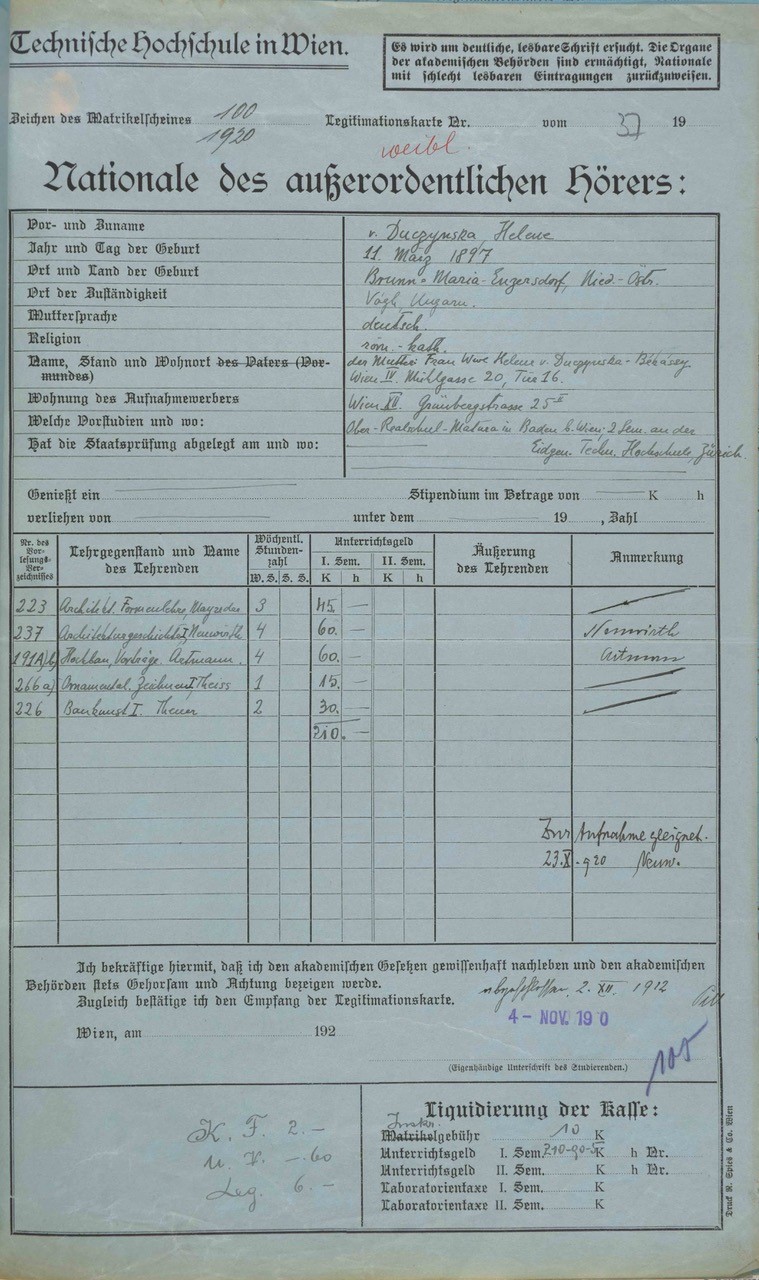 Technische Hochschule in Wien.
Es wird um deutliche, lesbare Schrift ersucht. Die Organe
der akademischen Behörden sind ermächtigt, Nationale
mit schlecht lesbaren Eintragungen zurückzuweisen.
Zeichen des Matrikelscheines 100 Legitimationskarte Nr. vom 37 19
1920
weibl.
Nationale des außerordentlichen Hörers:
Vor- und Zuname v. Duczynska Helene
Jahr und Tag der Geburt 11. März 1897
Ort und Land der Geburt Brunn-Maria-Enzersdorf, Nied.-Östr.
Ort der Zuständigkeit Vágh, Ungarn.
Muttersprache deutsch.
Religion röm.-kath.
Name, Stand und Wohnort des Vaters (Vor- der Mutter: Frau Wwe Helene v. Duczynska-Békássy
mundes) Wien IV. Mühlgasse 20, Tür 16.
Wohnung des Aufnahmewerbers Wien XII. Grünbergstrasse 25 II
Welche Vorstudien und wo: Ober-Realschul-Matura in Baden b. Wien; 2 Sem. an der
Hat die Staatsprüfung abgelegt am und wo: Eidgen. Techn. Hochschule, Zürich.
Genießt ein Stipendium im Betrage von K h
verliehen von unter dem 19 , Zahl
Nr. des Vor-lesungs-Ver-zeichnisses
Lehrgegenstand und Name des Lehrenden
Wöchentl. Stunden-zahl
W. S. S. S.
Unterrichtsgeld
I. Sem. II. Sem.
K h K h
Äußerung des Lehrenden
Anmerkung
223 Architekt. Formenlehre Mayreder 3 45. —
237 Architekturgeschichte I Neuwirth 4 60. — Neuwirth
191A)b) Hochbau, Vorträge. Artmann. 4 60. — Artmann
266a) Ornamental. Zeichnen I, Theiss 1 15. —
226 Baukunst I. Theuer 2 30. —
210. —
Zur Aufnahme geeignet.
23. X. 920 Neuw.
Ich bekräftige hiermit, daß ich den akademischen Gesetzen gewissenhaft nachleben und den akademischen
Behörden stets Gehorsam und Achtung bezeigen werde.
Zugleich bestätige ich den Empfang der Legitimationskarte.
abgeschlossen, 2. XII. 1912
4 - NOV. 19 0
Wien, am 192
(Eigenhändige Unterschrift des Studierenden.)
105
Liquidierung der Kasse:
Matrikelgebühr 10 K
Unterrichtsgeld I. Sem. K h Nr.
Unterrichtsgeld II. Sem. K h Nr.
Laboratorientaxe I. Sem. K
Laboratorientaxe II. Sem. K
K. F. 2. —
u. V. — 60
Leg. 6. —
Druck R. Spies & Co. Wien